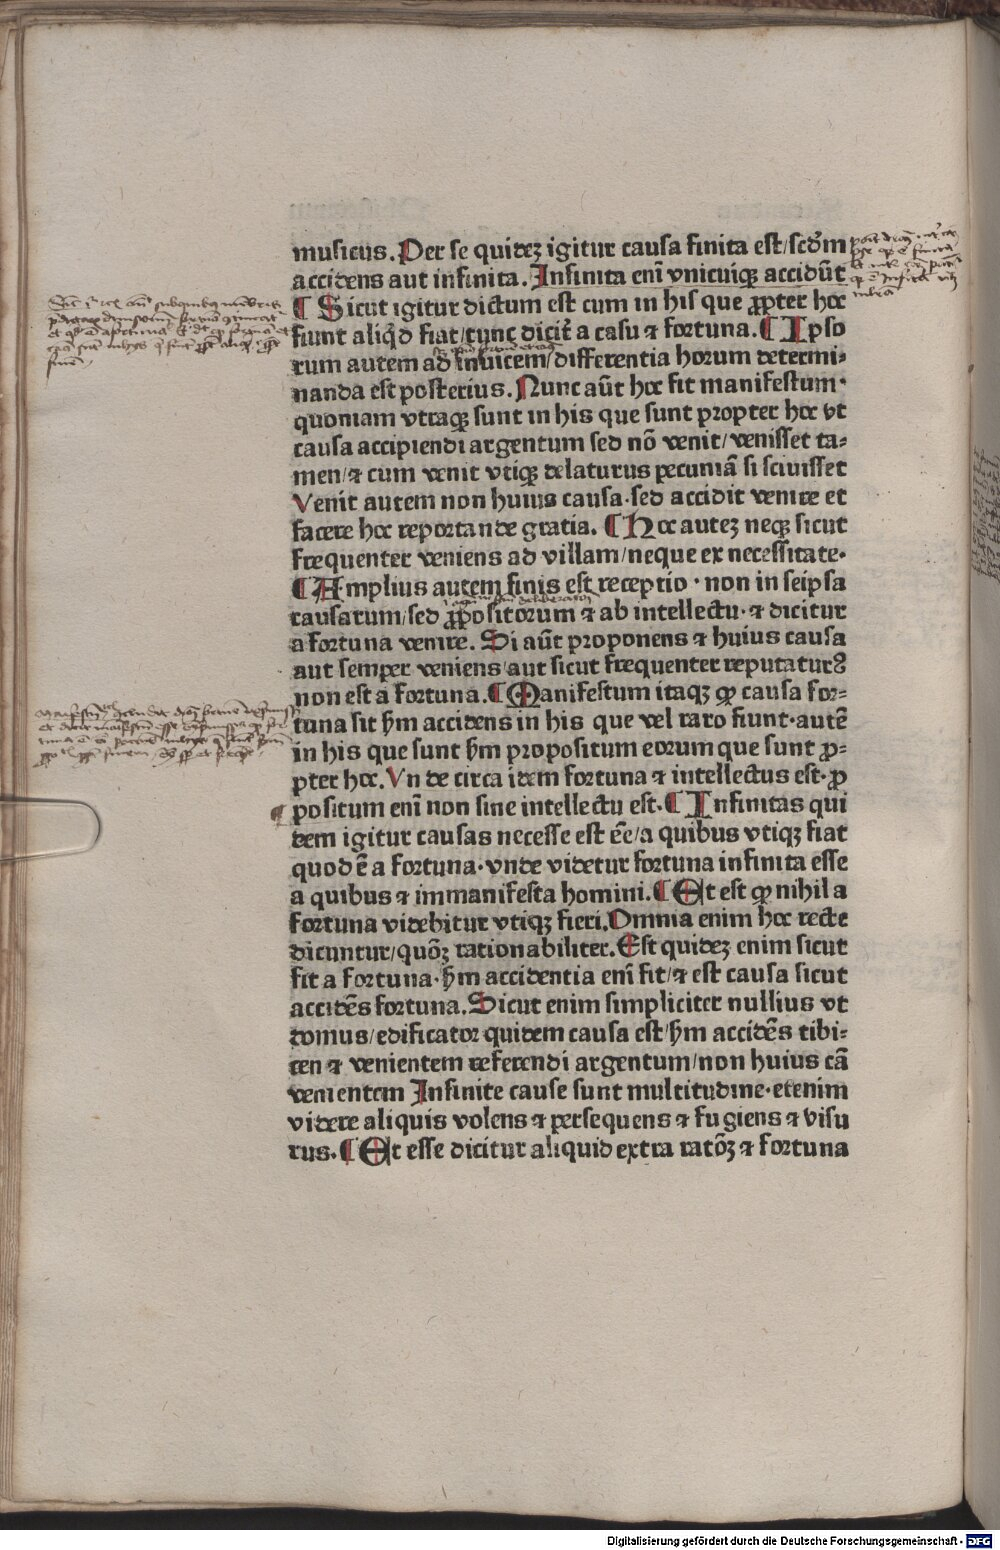 musicus. Per se quideꝫ igitur causa finita est/scd̄m
accidens aut infinita. Infinita enī vnicuiqꝫ accidūt
¶ Sicut igitur dictum est cum in his que ꝓpter hoc
fiunt aliqͥd fiat/tunc dicit̄ a casu ⁊ fortuna. ¶ Ipso
rum autem ad inuicem/differentia horum determi⸗
nanda est posterius. Nunc aūt hoc sit manifestum·
quoniam vtraqꝫ sunt in his que sunt propter hoc vt
causa accipiendi argentum sed nō venit/venisset ta⸗
men/⁊ cum venit vtiqꝫ delaturus pecuniā si sciuisset
Venit autem non huius causa·sed accidit venire et
facere hoc reportande gratia. ¶ Hoc auteꝫ neqꝫ sicut
frequenter veniens ad villam/neque ex necessitate·
¶ Amplius autem finis est receptio · non in seipsa
causarum/sed ꝓpositorum ⁊ ab intellectu· ⁊ dicitur
a fortuna venire. Si aūt proponens ⁊ huius causa
aut semper veniens/aut sicut frequenter reputatur?
non est a fortuna. ¶ Manifestum itaqꝫ ꝙ causa for⸗
tuna sit ẜm accidens in his que vel raro fiunt·autē
in his que sunt ẜm propositum eorum que sunt ꝓ⸗
pter hoc. Vnde circa idem fortuna ⁊ intellectus est·ꝓ
positum enī non sine intellectu est. ¶ Infinitas qui
dem igitur causas necesse est ēe/a quibus vtiqꝫ fiat
quod ē a fortuna·vnde videtur fortuna infinita esse
a quibus ⁊ immanifesta homini. ¶ Et est ꝙ nihil a
fortuna videbitur vtiqꝫ fieri. Omnia enim hec recte
dicuntur/quōꝫ rationabiliter. Est quideꝫ enim sicut
fit a fortuna·ẜm accidentia enī fit/⁊ est causa sicut
accidēs fortuna. Sicut enim simpliciter nullius vt
domus/edificator quidem causa est/ẜm accidēs tibi⸗
cen ⁊ venientem referendi argentum/non huius cā
venientem Infinite cause sunt multitudine·etenim
videre aliquis volens ⁊ persequens ⁊ fugiens ⁊ visu
rus. ¶ Et esse dicitur aliquid extra ratōꝫ ⁊ fortuna
Digitalisierung gefördert durch die Deutsche Forschungsgemeinschaft · DFG